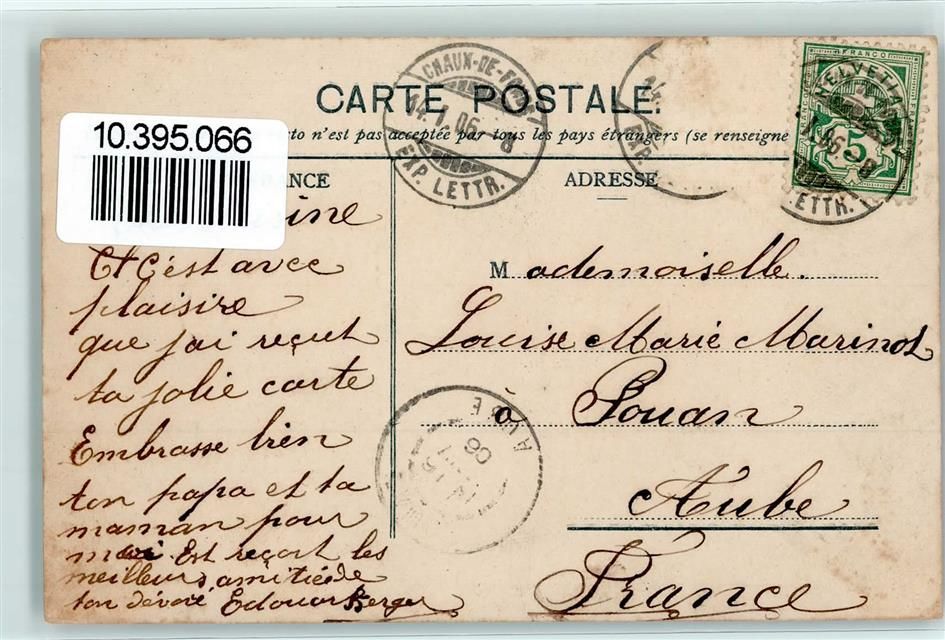 CARTE POSTALE.
10.395.066
sto n'est pas acceptée par tous les pays étrangers (se renseigne
ANCE
ADRESSE
CHAUX-DE-FO
14. 1. 06. 8
EXP. LETTR.
14.
EXP.
FRANCO
HELVETIA
5
06. 8
LETTR.
ine
Et c'est avec
plaisire
que j'ai reçut
ta jolie carte
Embrasse bien
ton papa et ta
maman pour
moi Est reçoit les
meilleurs amitié de
ton dévoré Edouar Berger
Mademoiselle.
Louise Marie Marinot
à Pouan
Aube
France
AUBE
06